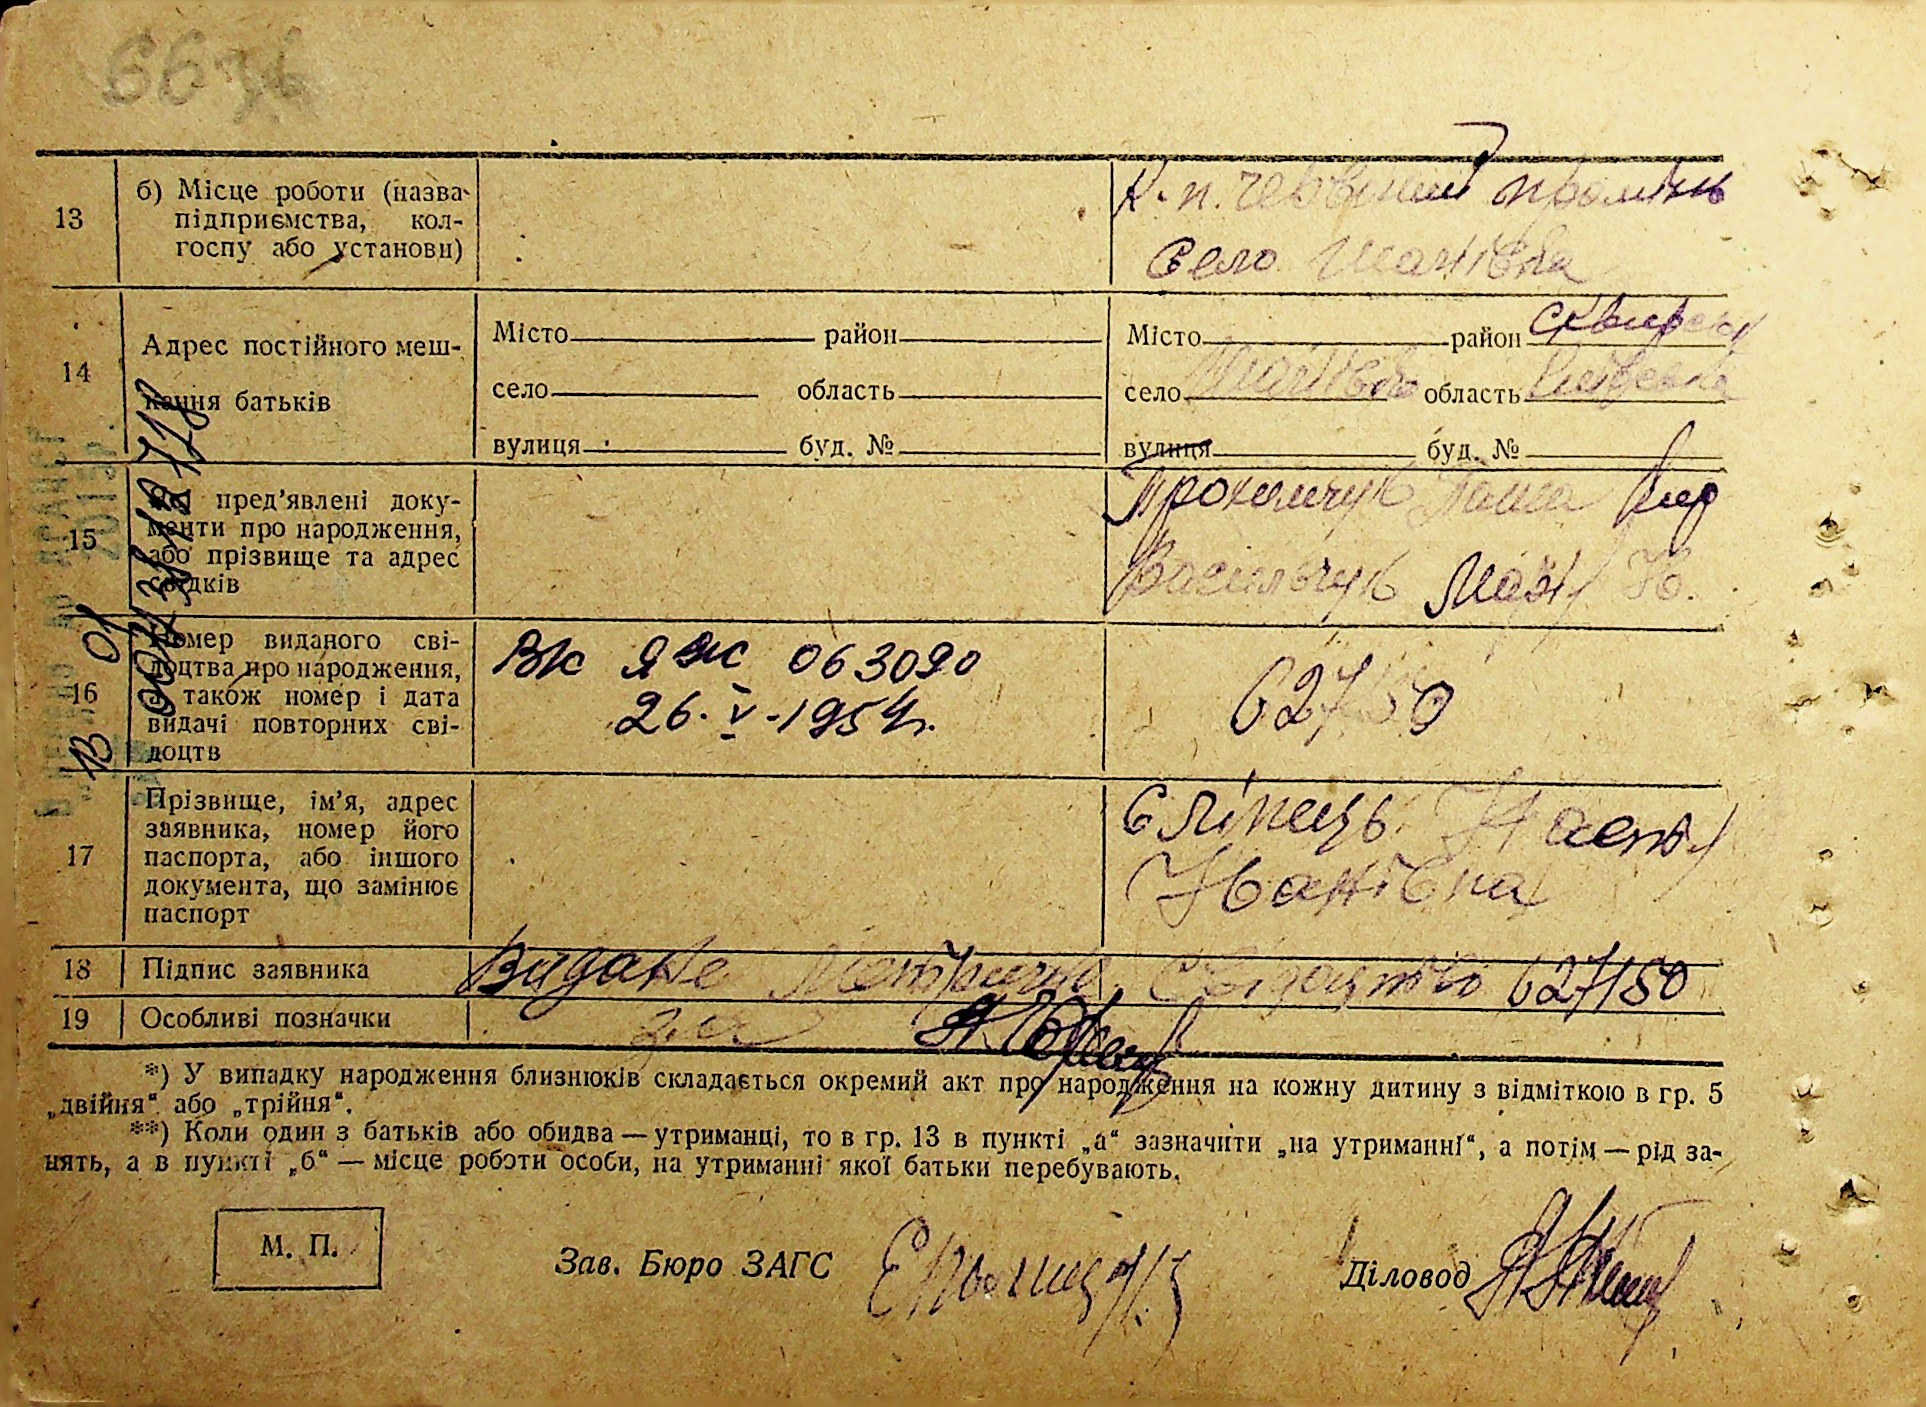 13
б) Місце роботи (назва
підприємства, кол-
госпу або установи)
К. п. червоний промінь
село Шанівка
14
Адрес постійного меш-
кання батьків
Місто район
село область
вулиця буд. №
Місто район сквирськ
село область
вулиця буд. №
15
пред'явлені доку-
менти про народження,
або прізвище та адрес
свідків
Прокопчук
Васильчук
16
Номер виданого сві-
доцтва про народження,
а також номер і дата
видачі повторних сві-
доцтв
ВК ЯЖ 063090
26.V-1954 г.
62750
17
Прізвище, ім'я, адрес
заявника, номер його
паспорта, або іншого
документа, що замінює
паспорт
Сліпець
Іванівна
18
Підпис заявника
Видане Метричне Свідоцтво 627150
19
Особливі позначки
за
*) У випадку народження близнюків складається окремий акт про народження на кожну дитину з відміткою в гр. 5
„двійня“ або „трійня“.
**) Коли один з батьків або обидва — утриманці, то в гр. 13 в пункті „а“ зазначити „на утриманні“, а потім — рід за-
нять, а в пункті „б“ — місце роботи особи, на утриманні якої батьки перебувають.
М. П.
Зав. Бюро ЗАГС
Діловод